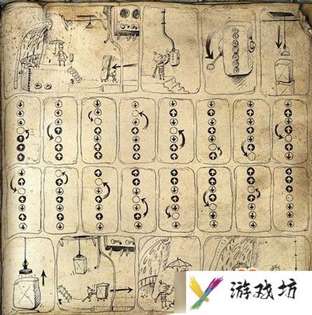 游戏坊